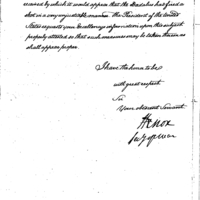 received by which it would appear that the Daedalus has fired a
shot in a very unjustifiable manner the President of the United
States requests your Excellencys information upon this subject
properly attested so that such measures may be taken therein as
shall appear proper.
I have the honor to be
with great respect
Sir
Your obedient Servant
HKnox
Secy of War